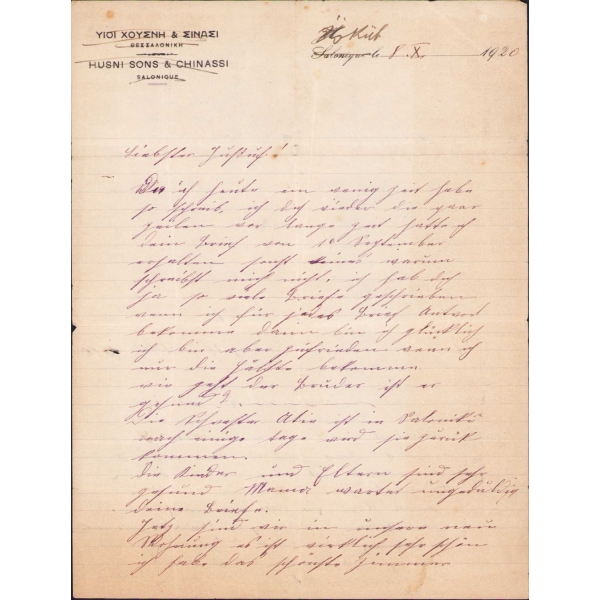 ΥΙΟΙ ΧΟΥΣΝΗ & ΣΙΝΑΣΙ
ΘΕΣΣΑΛΟΝΙΚΗ
HUSNI SONS & CHINASSI
SALONIQUE
Üsküb
Salonique le 8. X. 1920
Liebster
Da ich heute ein wenig zeit habe
so schreib ich dir wieder die paar
zeilen vor lange zeit hatte ich
dein Brief von 1e September
erhalten sonst keines warum
schreibst mich nicht, ich hab doch
ja so viele Briefe geschrieben
wenn ich für jedes Brief Antwort
bekomme dann bin ich glücklich
ich bin aber zufrieden wenn ich
nur die Hälfte bekomme
wie geht der Bruder ist er
gesund?
Die Schwester Atie ist in Saloniki
nach einige tage wird sie zurük
kommen.
die Kinder und Eltern sind sehr
gesund Mama wartet ungeduldig
deine Briefe.
Jetz sind wir in unsere neue
Wohnung es ist wirklich sehr schön
ich habe das schönste zimmer